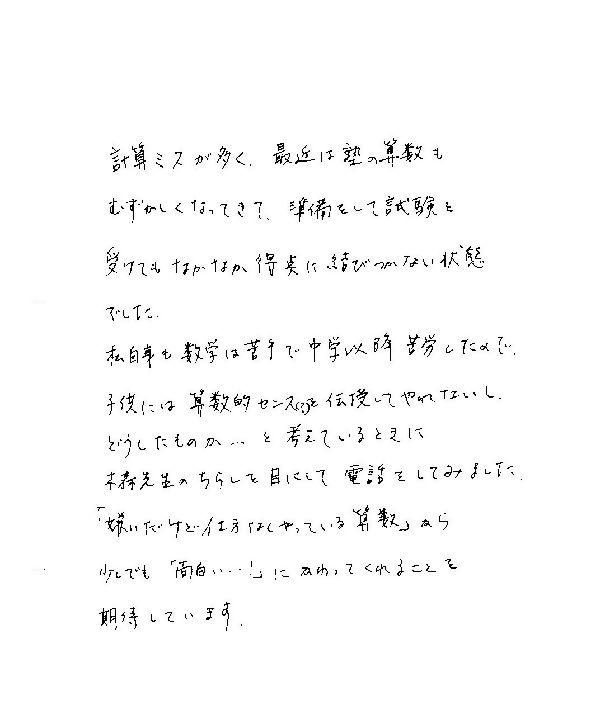 計算ミスが多く、最近は塾の算数も
むずかしくなってきて、準備をして試験を
受けてもなかなか得点に結びつかない状態
でした。
私自身も数学は苦手で中学以降苦労したので、
子供には算数的センスを伝授してやれないし、
どうしたものか…と考えているときに
先生のちらしを目にして電話をしてみました。
「嫌いだけど仕方なしやっている算数」から
少しでも「面白い…!」にかわってくれることを
期待しています。